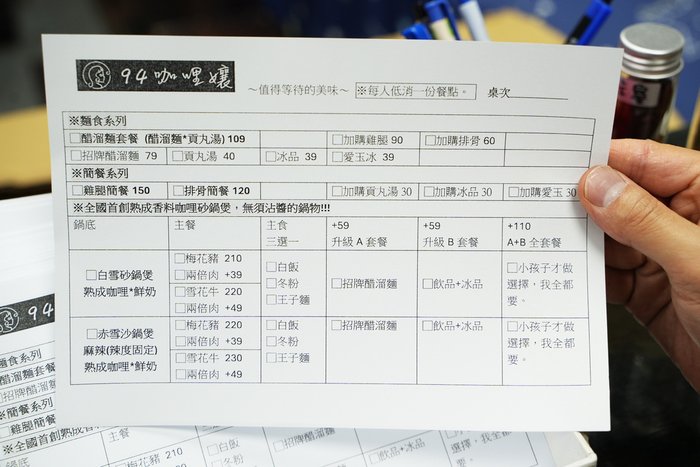 94咖哩孃
～值得等待的美味～ ※每人低消一份餐點。 桌次
※麵食系列
□醋溜麵套餐 (醋溜麵*貢丸湯) 109 □加購雞腿 90 □加購排骨 60
□招牌醋溜麵 79 □貢丸湯 40 □冰品 39 □愛玉冰 39
※簡餐系列
□雞腿簡餐 150 □排骨簡餐 120 □加購貢丸湯 30 □加購冰品 30 □加購愛玉 30
※全國首創熟成香料咖哩砂鍋煲，無須沾醬的鍋物!!!
鍋底 主餐 主食 +59 +59 +110
三選一 升級 A 套餐 升級 B 套餐 A+B 全套餐
□白雪砂鍋煲
熟成咖哩*鮮奶
□梅花豬 210
□兩倍肉 +39
□雪花牛 220
□兩倍肉 +49
□白飯
□冬粉
□王子麵
□招牌醋溜麵
□飲品+冰品
□小孩子才做
選擇，我全都
要。
□赤雪沙鍋煲
麻辣(辣度固定)
熟成咖哩*鮮奶
□梅花豬 220
□兩倍肉 +39
□雪花牛 230
□兩倍肉 +49
□白飯
□冬粉
□王子麵
□招牌醋溜麵
□飲品+冰品
□小孩子才做
選擇，我全都
要。
94
※麵食系列
□醋溜麵套餐
□招牌醋溜麵
※簡餐系列
□雞腿簡餐
※全國首創熟成香
鍋底 主餐
□梅花豬 210
□白飯
□冬粉
□招牌醋溜麵
□飲品+冰品
選擇，我全都
要。